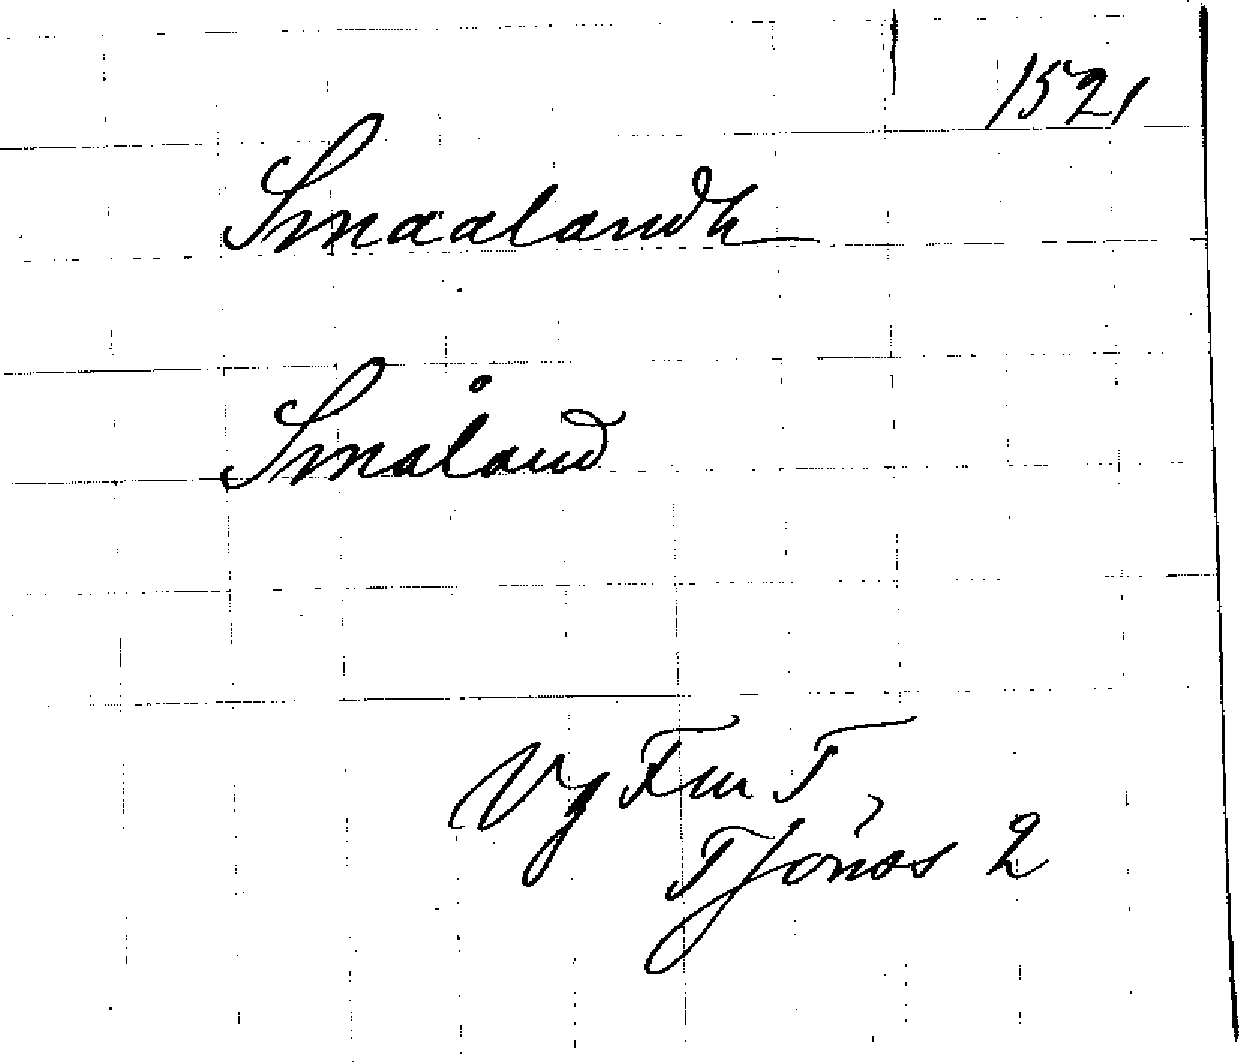 1521
Smaalandh
Småland
Vg Fm T
Tjónas 2